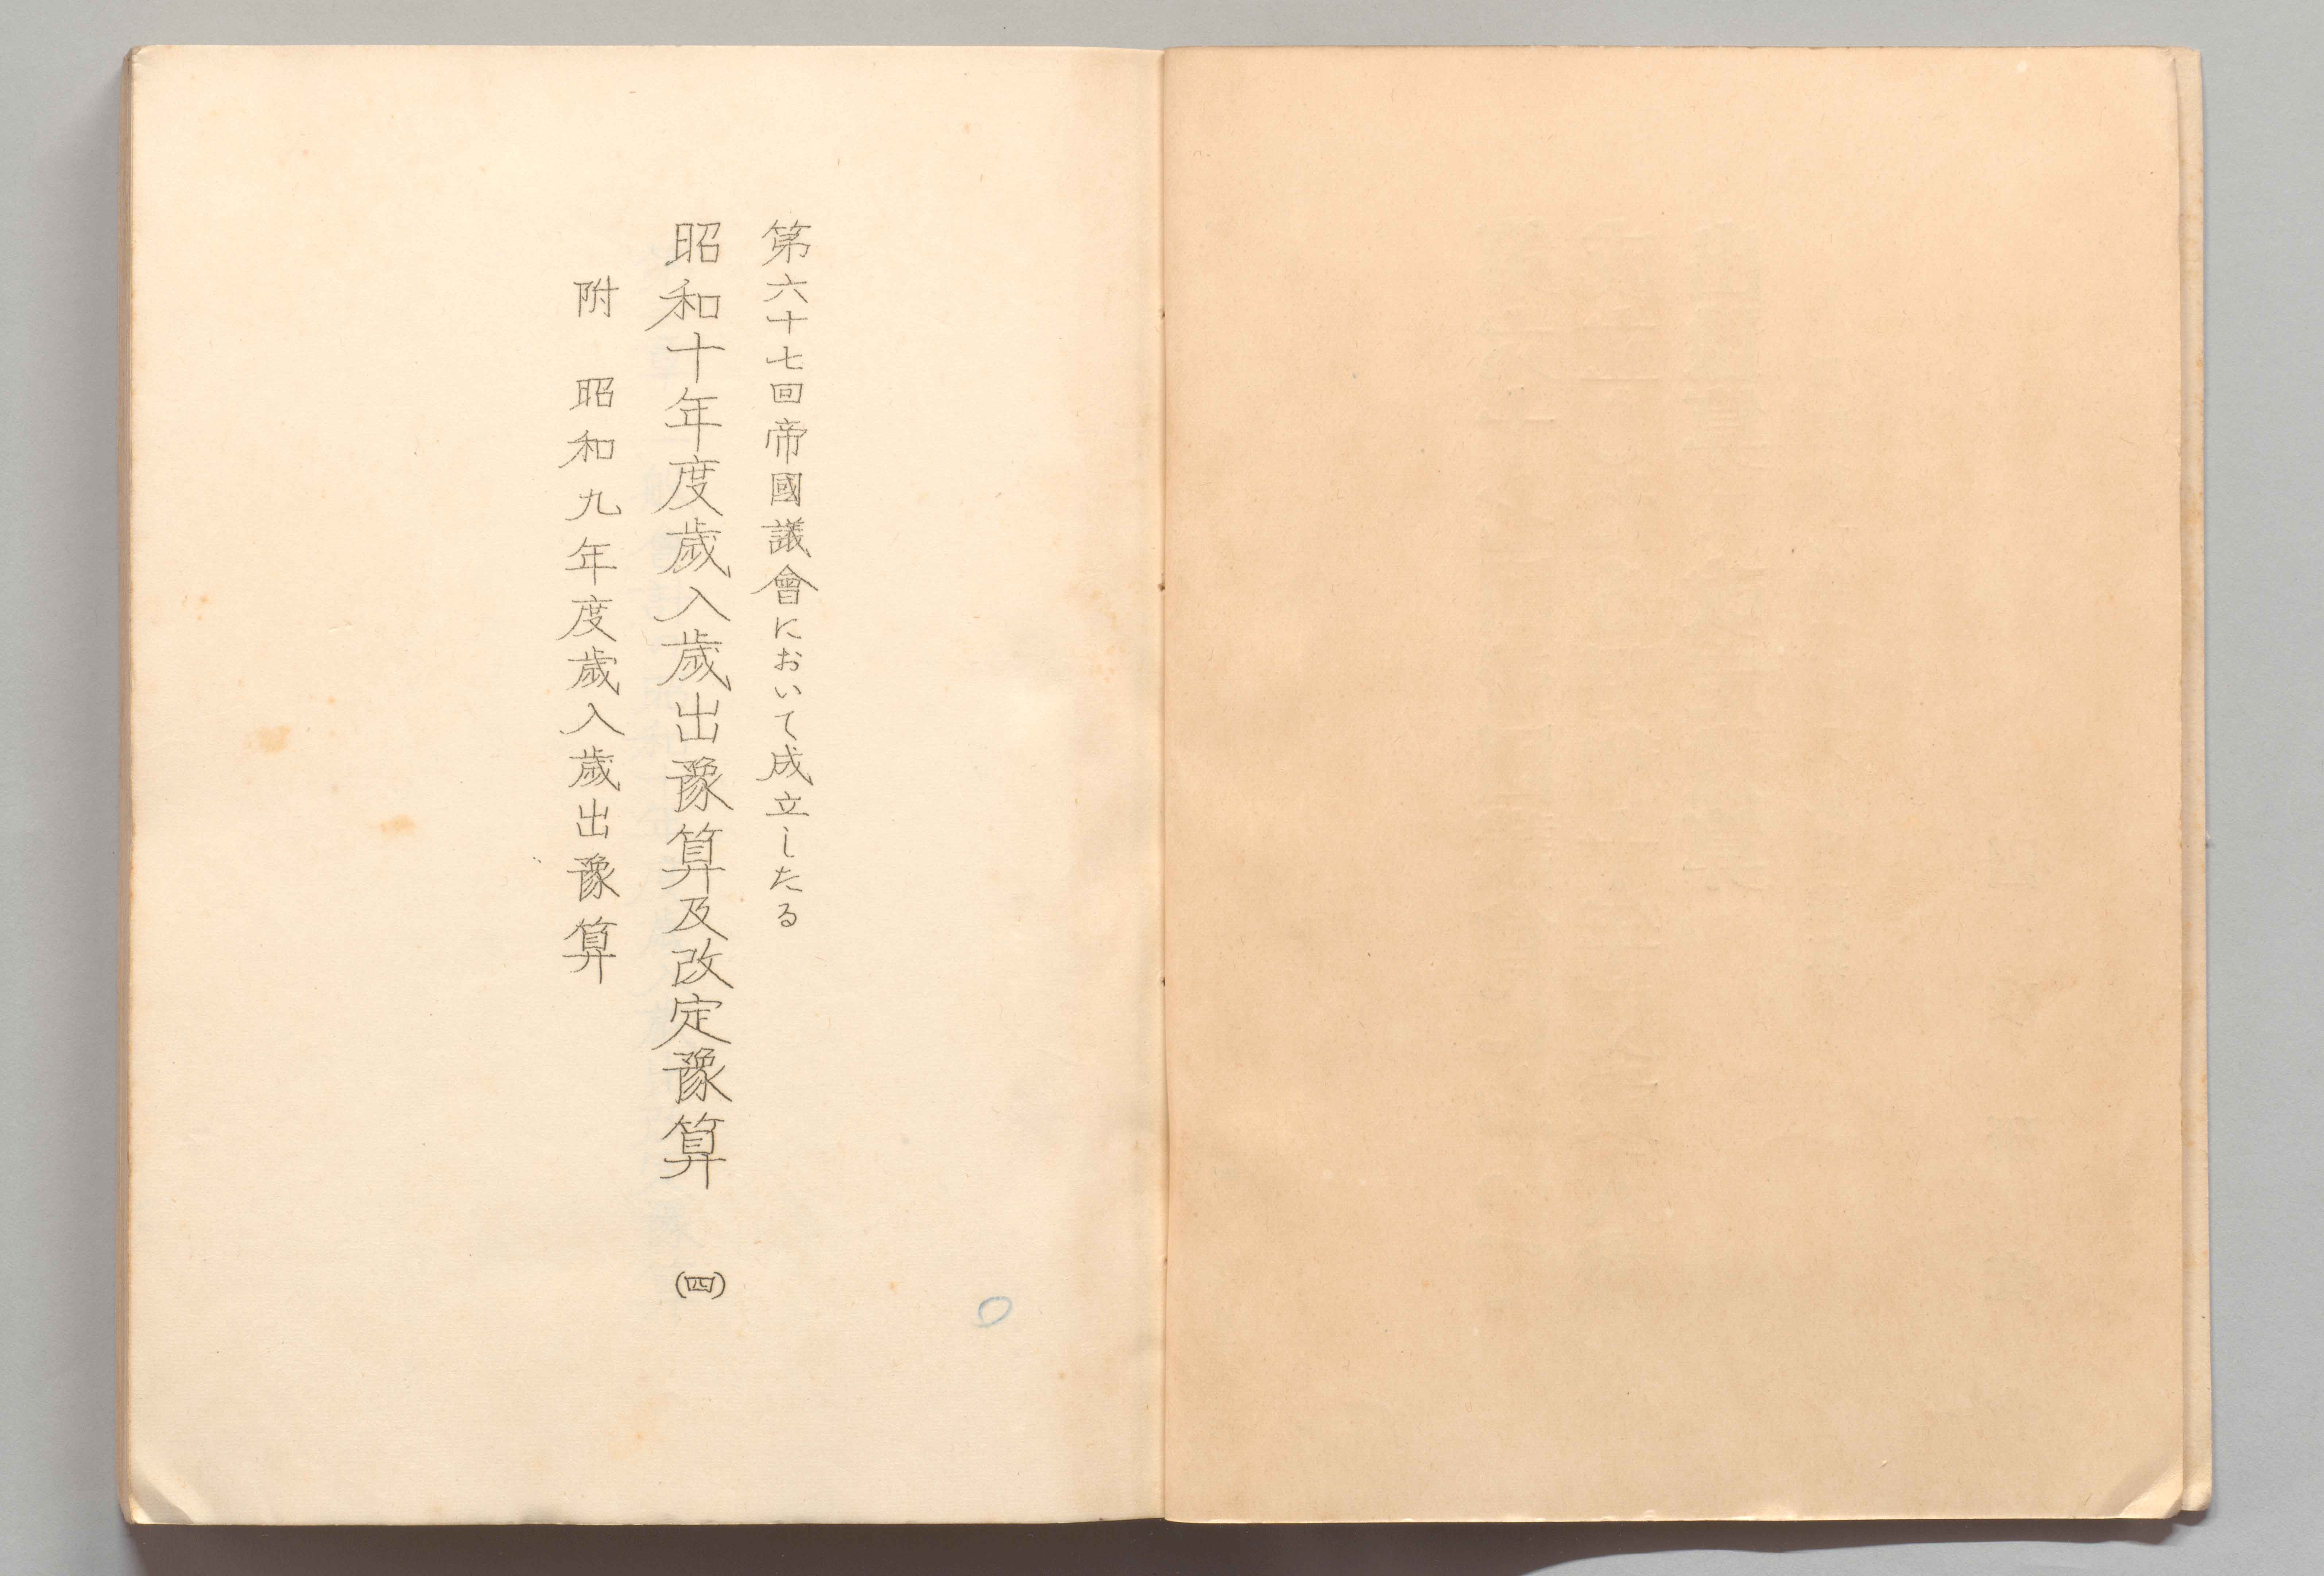 第六十七回帝國議會において成立したる
昭和十年度歲入歲出豫算及改定豫算 (四)
附 昭和九年度歲入歲出豫算